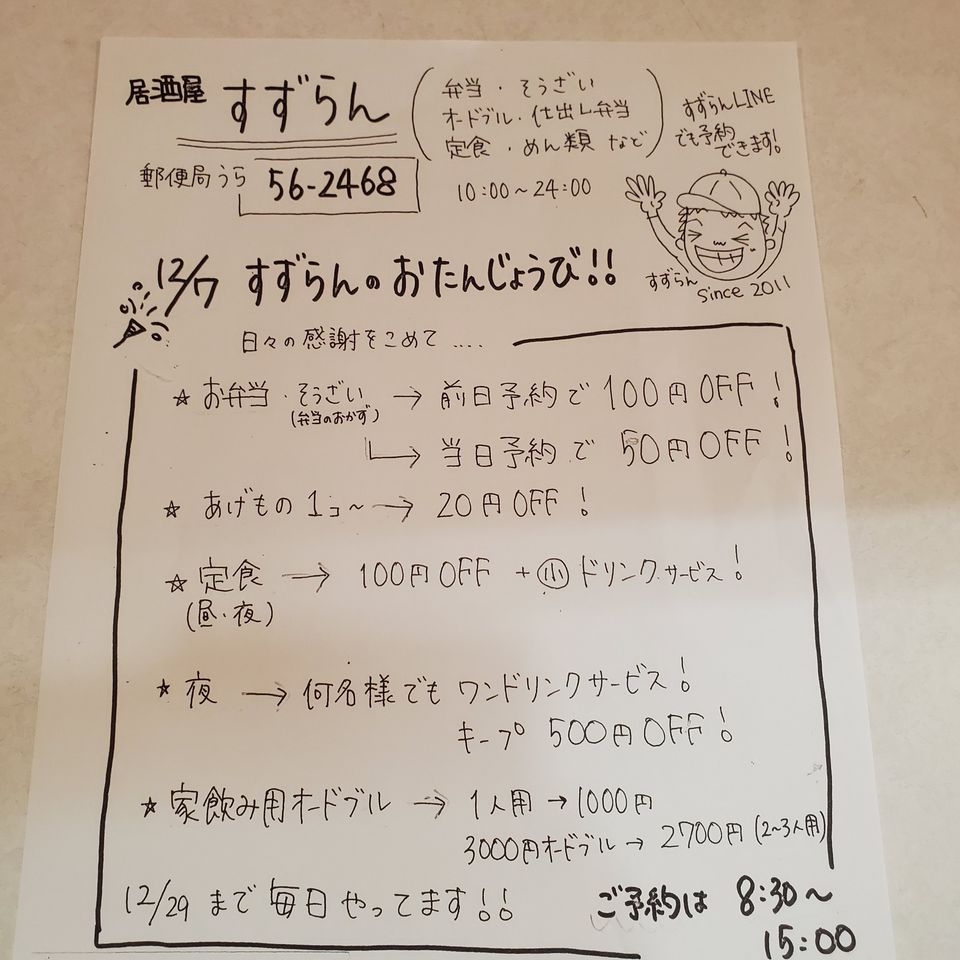 居酒屋 すずらん
(弁当・そうざい
オードブル・仕出し弁当
定食・めん類 など)
すずらんLINE
でも予約
できます!
郵便局うら 56-2468
10:00~24:00
すずらん
since 2011
12/7 すずらんのおたんじょうび!!
日々の感謝をこめて ....
☆ お弁当・そうざい → 前日予約で 100円OFF!
(弁当のおかず)
→ 当日予約で 50円OFF!
☆ あげもの 1コ~ → 20円OFF!
☆ 定食 → 100円OFF + ㊥ドリンクサービス!
(昼・夜)
☆ 夜 → 何名様でも ワンドリンクサービス!
キープ 500円OFF!
☆ 家飲み用オードブル → 1人用 → 1000円
3000円オードブル → 2700円 (2~3人用)
12/29 まで 毎日 やってます!!
ご予約は 8:30~
15:00